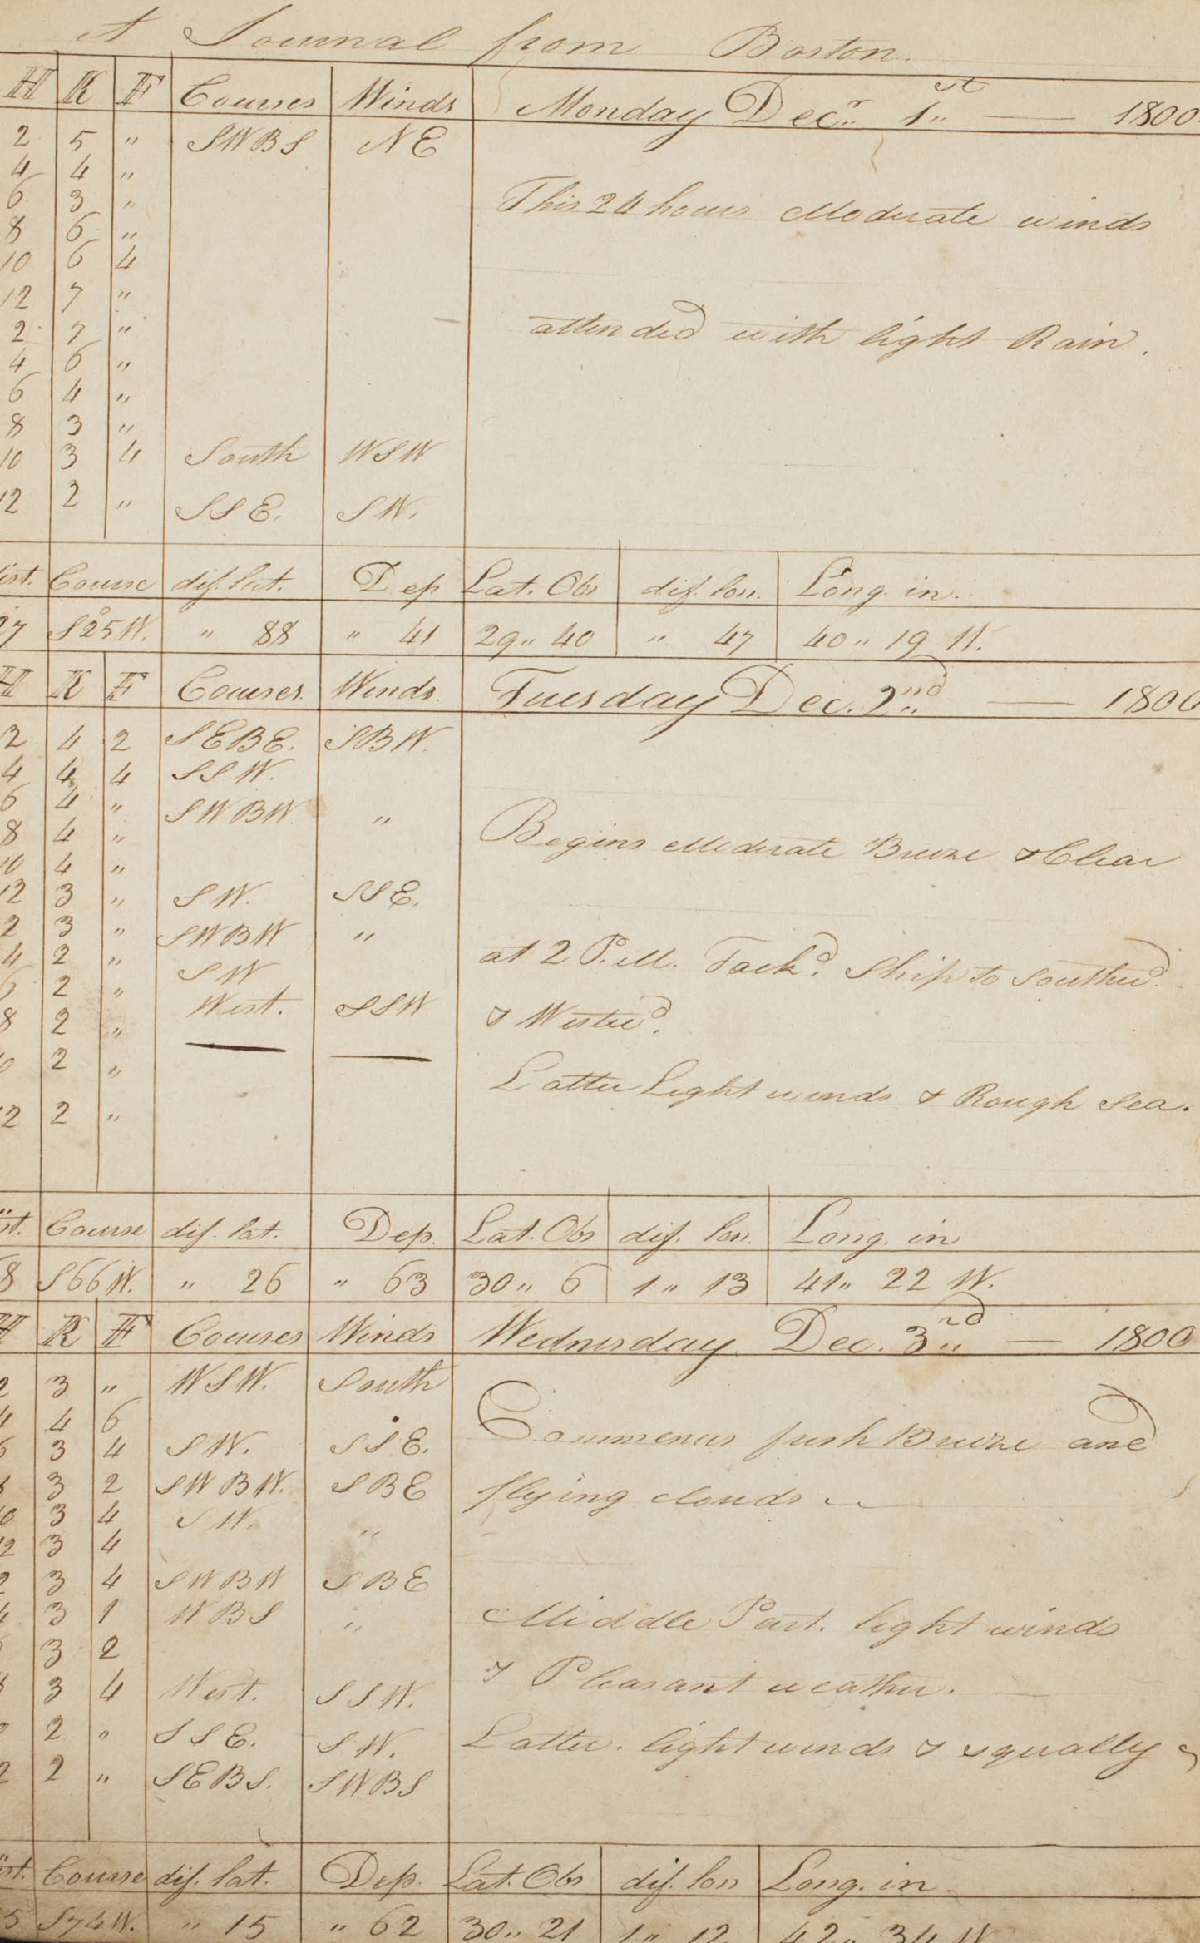 A Journal from Boston.
H K F Courses Winds Monday Decr. 1st — 1800
2 5 " SWBS NE
4 4 "
6 3 " This 24 hours Moderate winds
8 6 "
10 6 4
12 7 "
2 7 " attended with light Rain.
4 6 "
6 4 "
8 3 "
10 3 4 South WSW
12 2 " SSE. SW.
ist. Course dif. lat. Dep Lat. Obs dif. lon. Long. in.
7 S25°W. " 88 " 41 29" 40 " 47 40" 19 W.
H K F Courses Winds Tuesday Dec. 2nd — 1800
2 4 2 SEBE. SBW.
4 4 4 SSW.
6 4 " SWBW "
8 4 " Begins Moderate Breeze & Clear
10 4 "
12 3 " SW. SSE.
2 3 " SWBW "
4 2 " SW at 2 P.M. Tackd. Ship to Southerd.
6 2 " West. SSW & Westerd.
8 2 " — —
10 2 " Latter light winds & Rough Sea.
12 2 "
st. Course dif. lat. Dep. Lat. Obs dif. lon Long. in
8 S66W. " 26 " 63 30" 6 1" 13 41" 22 W.
H K F Courses Winds Wednesday Dec. 3rd — 1800
2 3 " WSW. South
4 4 6 Commences fresh Breeze and
6 3 4 SW. SSE.
8 3 2 SWBW. SBE flying clouds
10 3 4 SW. "
12 3 4
2 3 4 SWBW SBE
4 3 1 WBS " Middle Part. light winds
3 2
8 3 4 West. SSW. & Pleasant weather.
2 " SSE. SW. Latter. light winds & squally
2 2 " SEBS. SWBS
ist. Course dif. lat. Dep. Lat. Obs dif. lon Long. in
5 S74W. " 15 " 62 30" 21 1" 12 42" 34 W